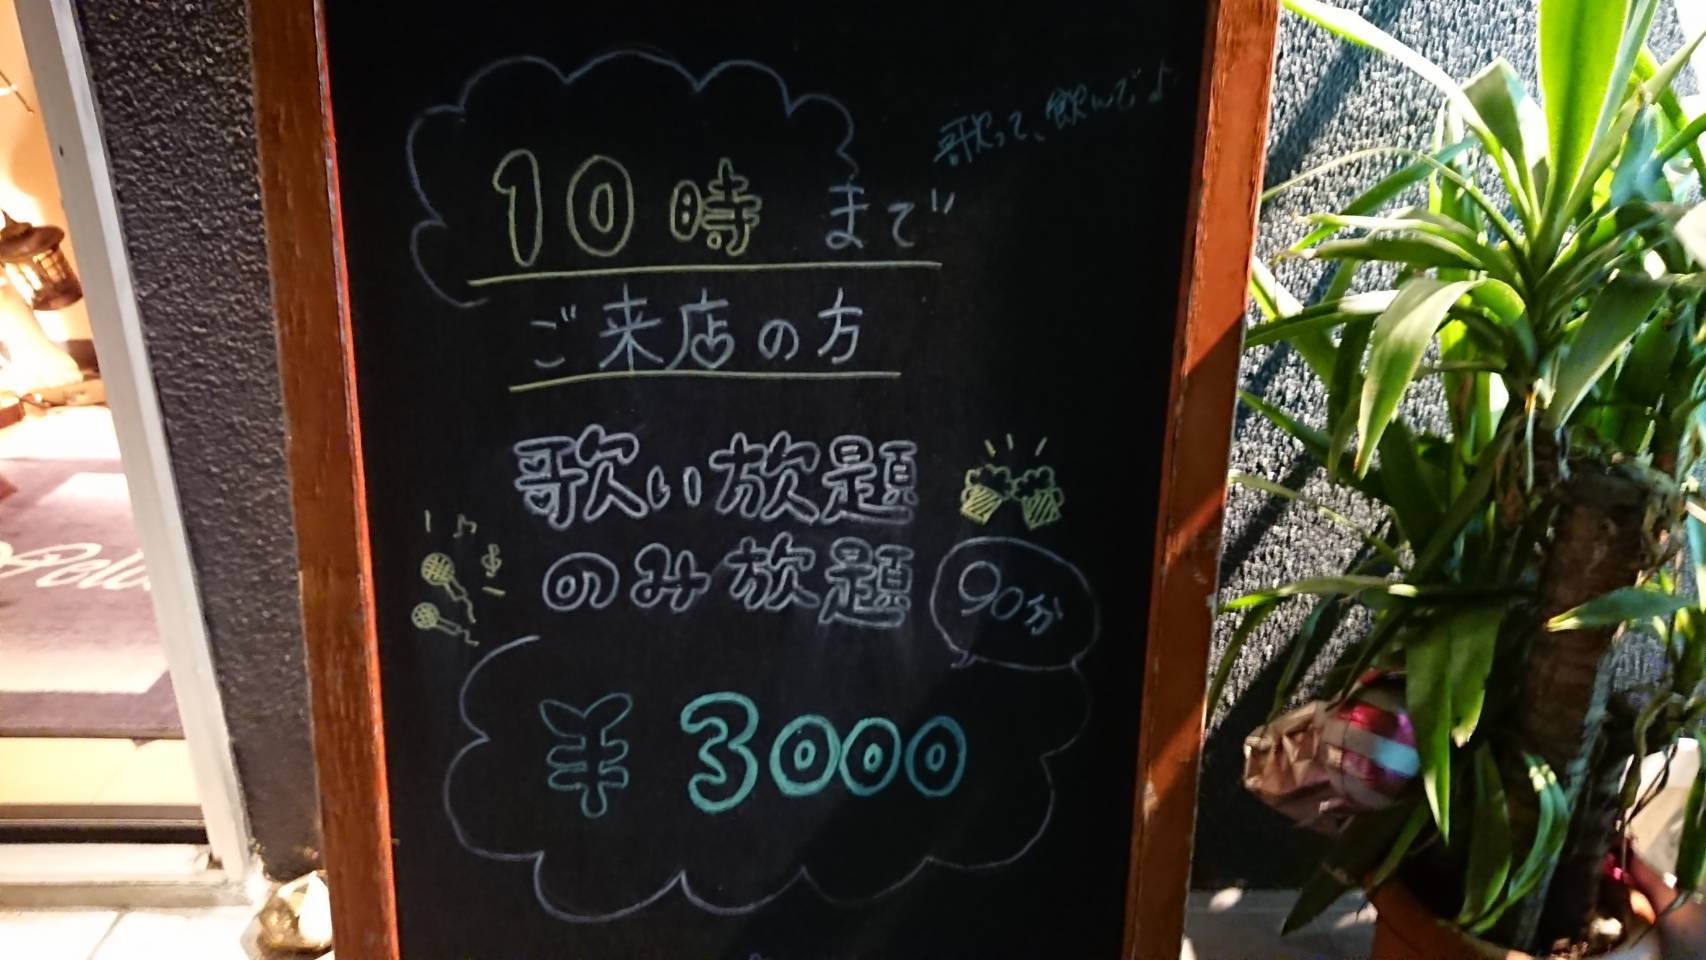 歌って、飲んで♪
10時まで
ご来店の方
歌い放題
のみ放題
90分
¥3000